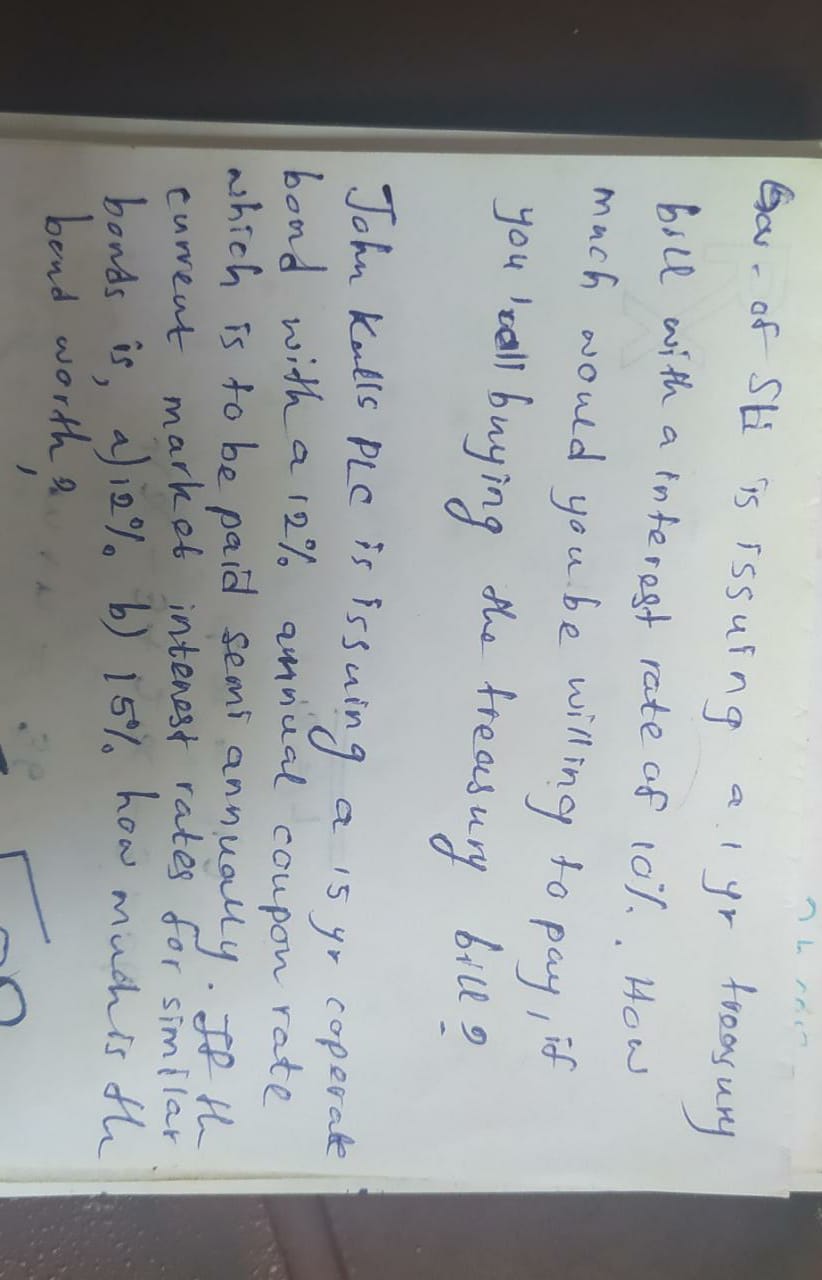 Gov. of Sri is issuing a 1 yr treasury
bill with a interest rate of 10%. How
much would you be willing to pay, if
you buying the treasury bill?
John Kells PLC is issuing a 15 yr coperate
bond with a 12% annual coupon rate
which is to be paid semi annually. If th
current market interest rates for similar
bonds is, a) 12% b) 15% how much is th
bond worth?